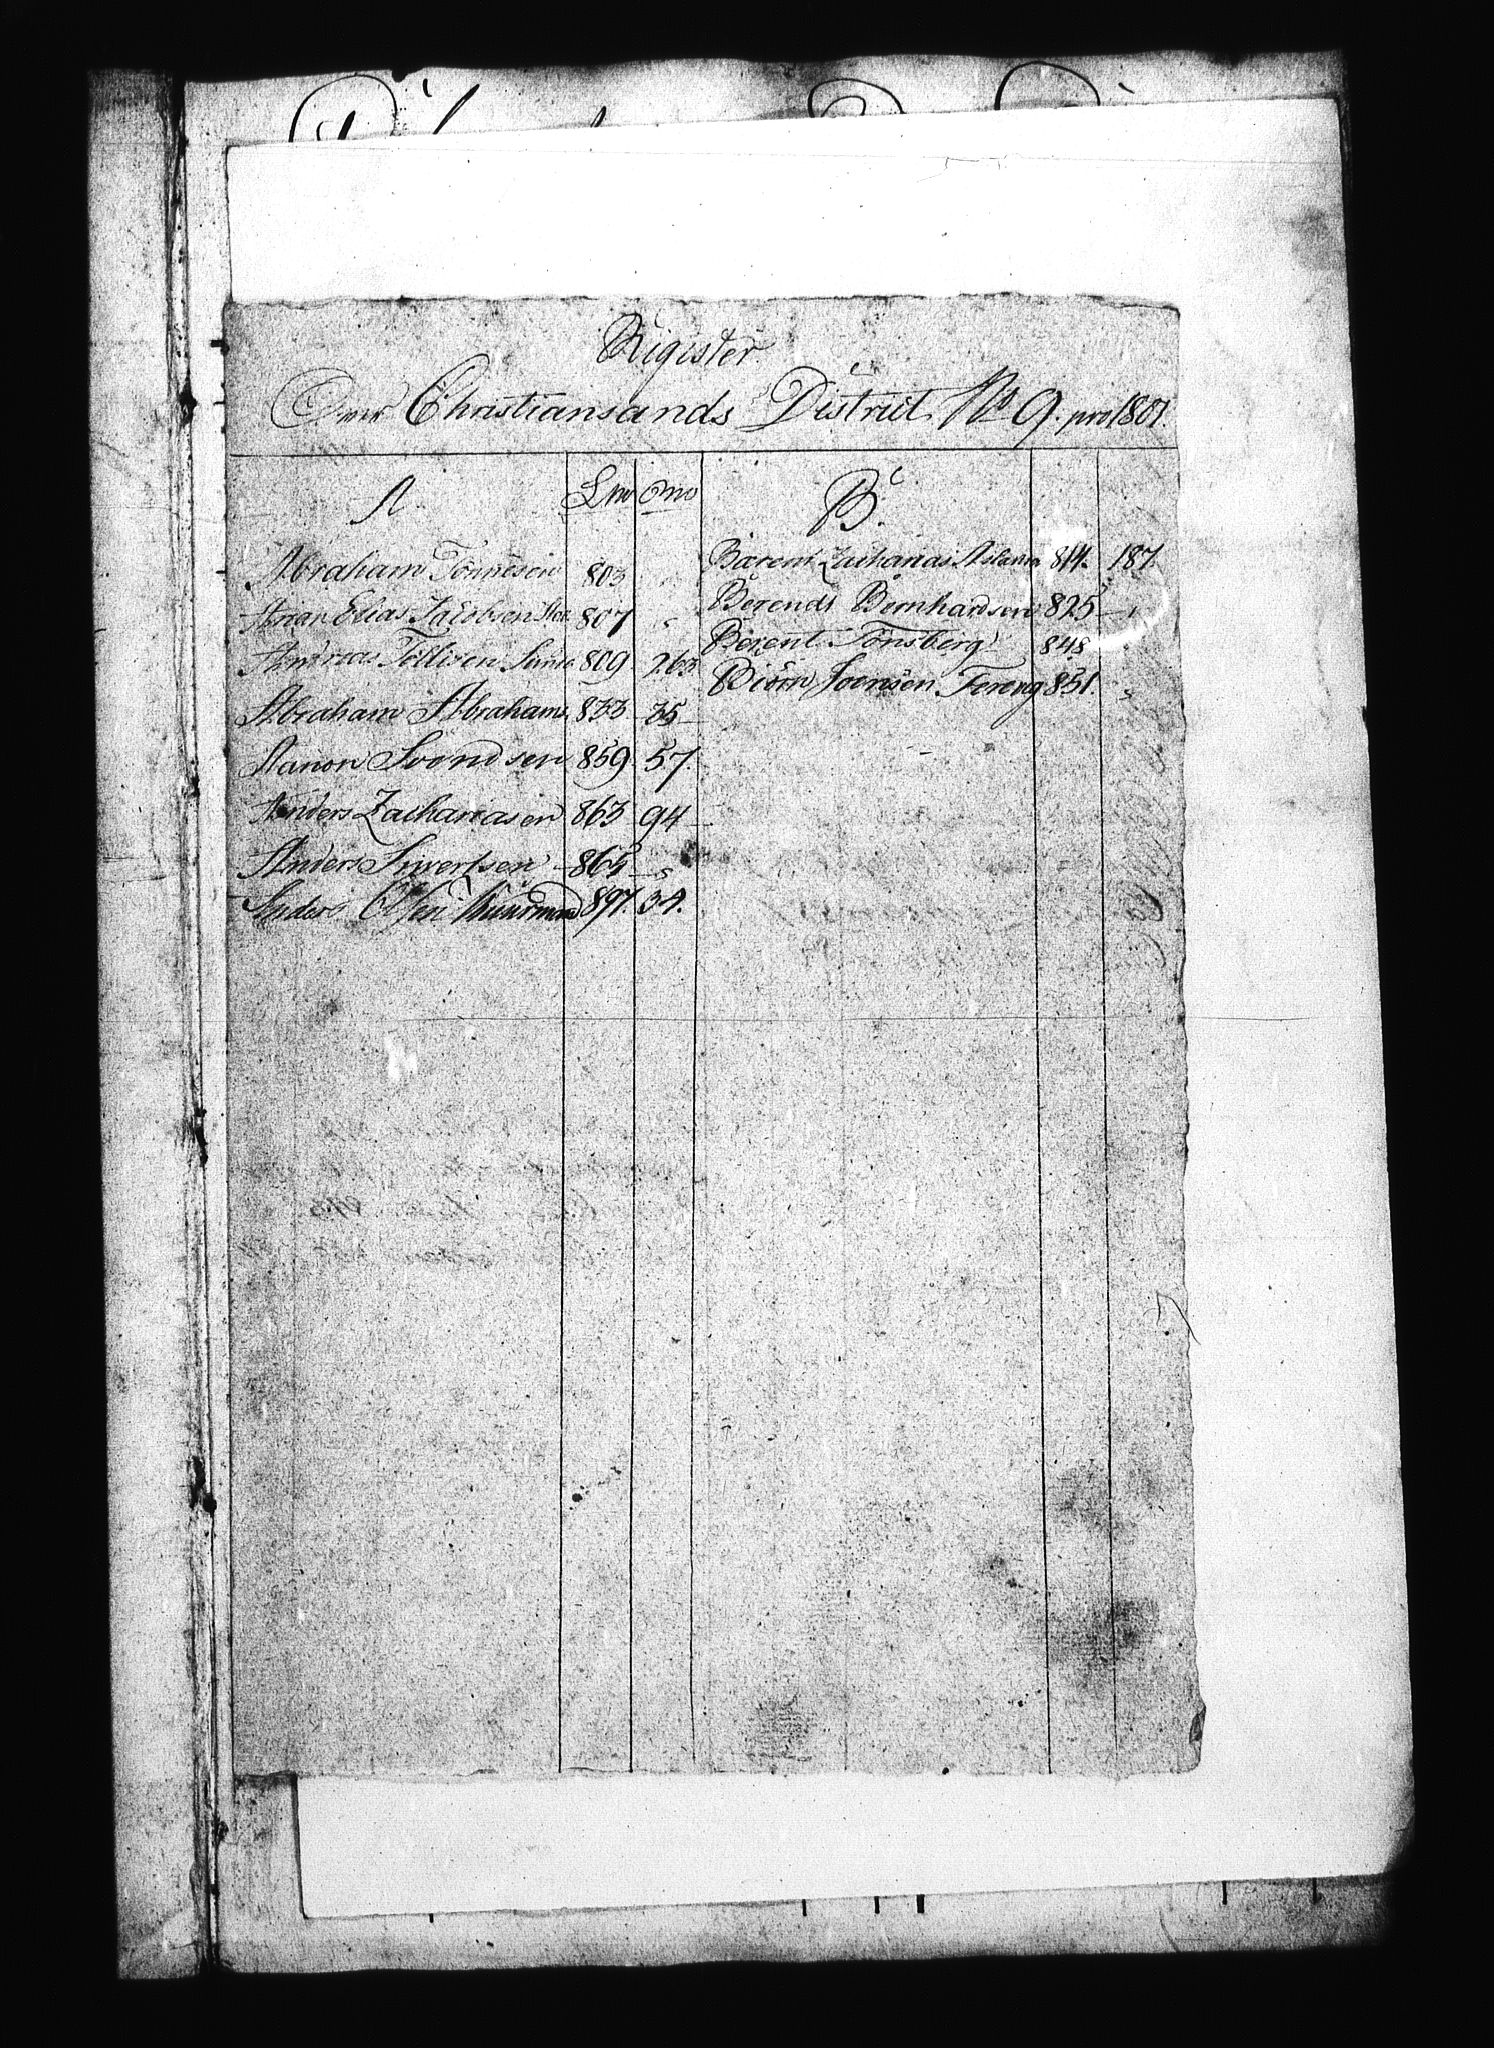 Rigister
Over Christiansands District No 9. pro 1801.
A. Lno Ono
Abraham Tönnesen 803
Elias Jacobsen 807 "
Andreas Tollisen 809. 263
Abraham Abrahams. 833 35
Aanon Svendsen 859 57.
Anders Zachariasen 863 94
Anders Sivertsen 865 "
Anders Olsen 897. 34.
B.
Bærent Zacharias 814. 187.
Berendt Bernhardsen 825 "
Berent Tönsberg 848
Biörn Joensen 851. "